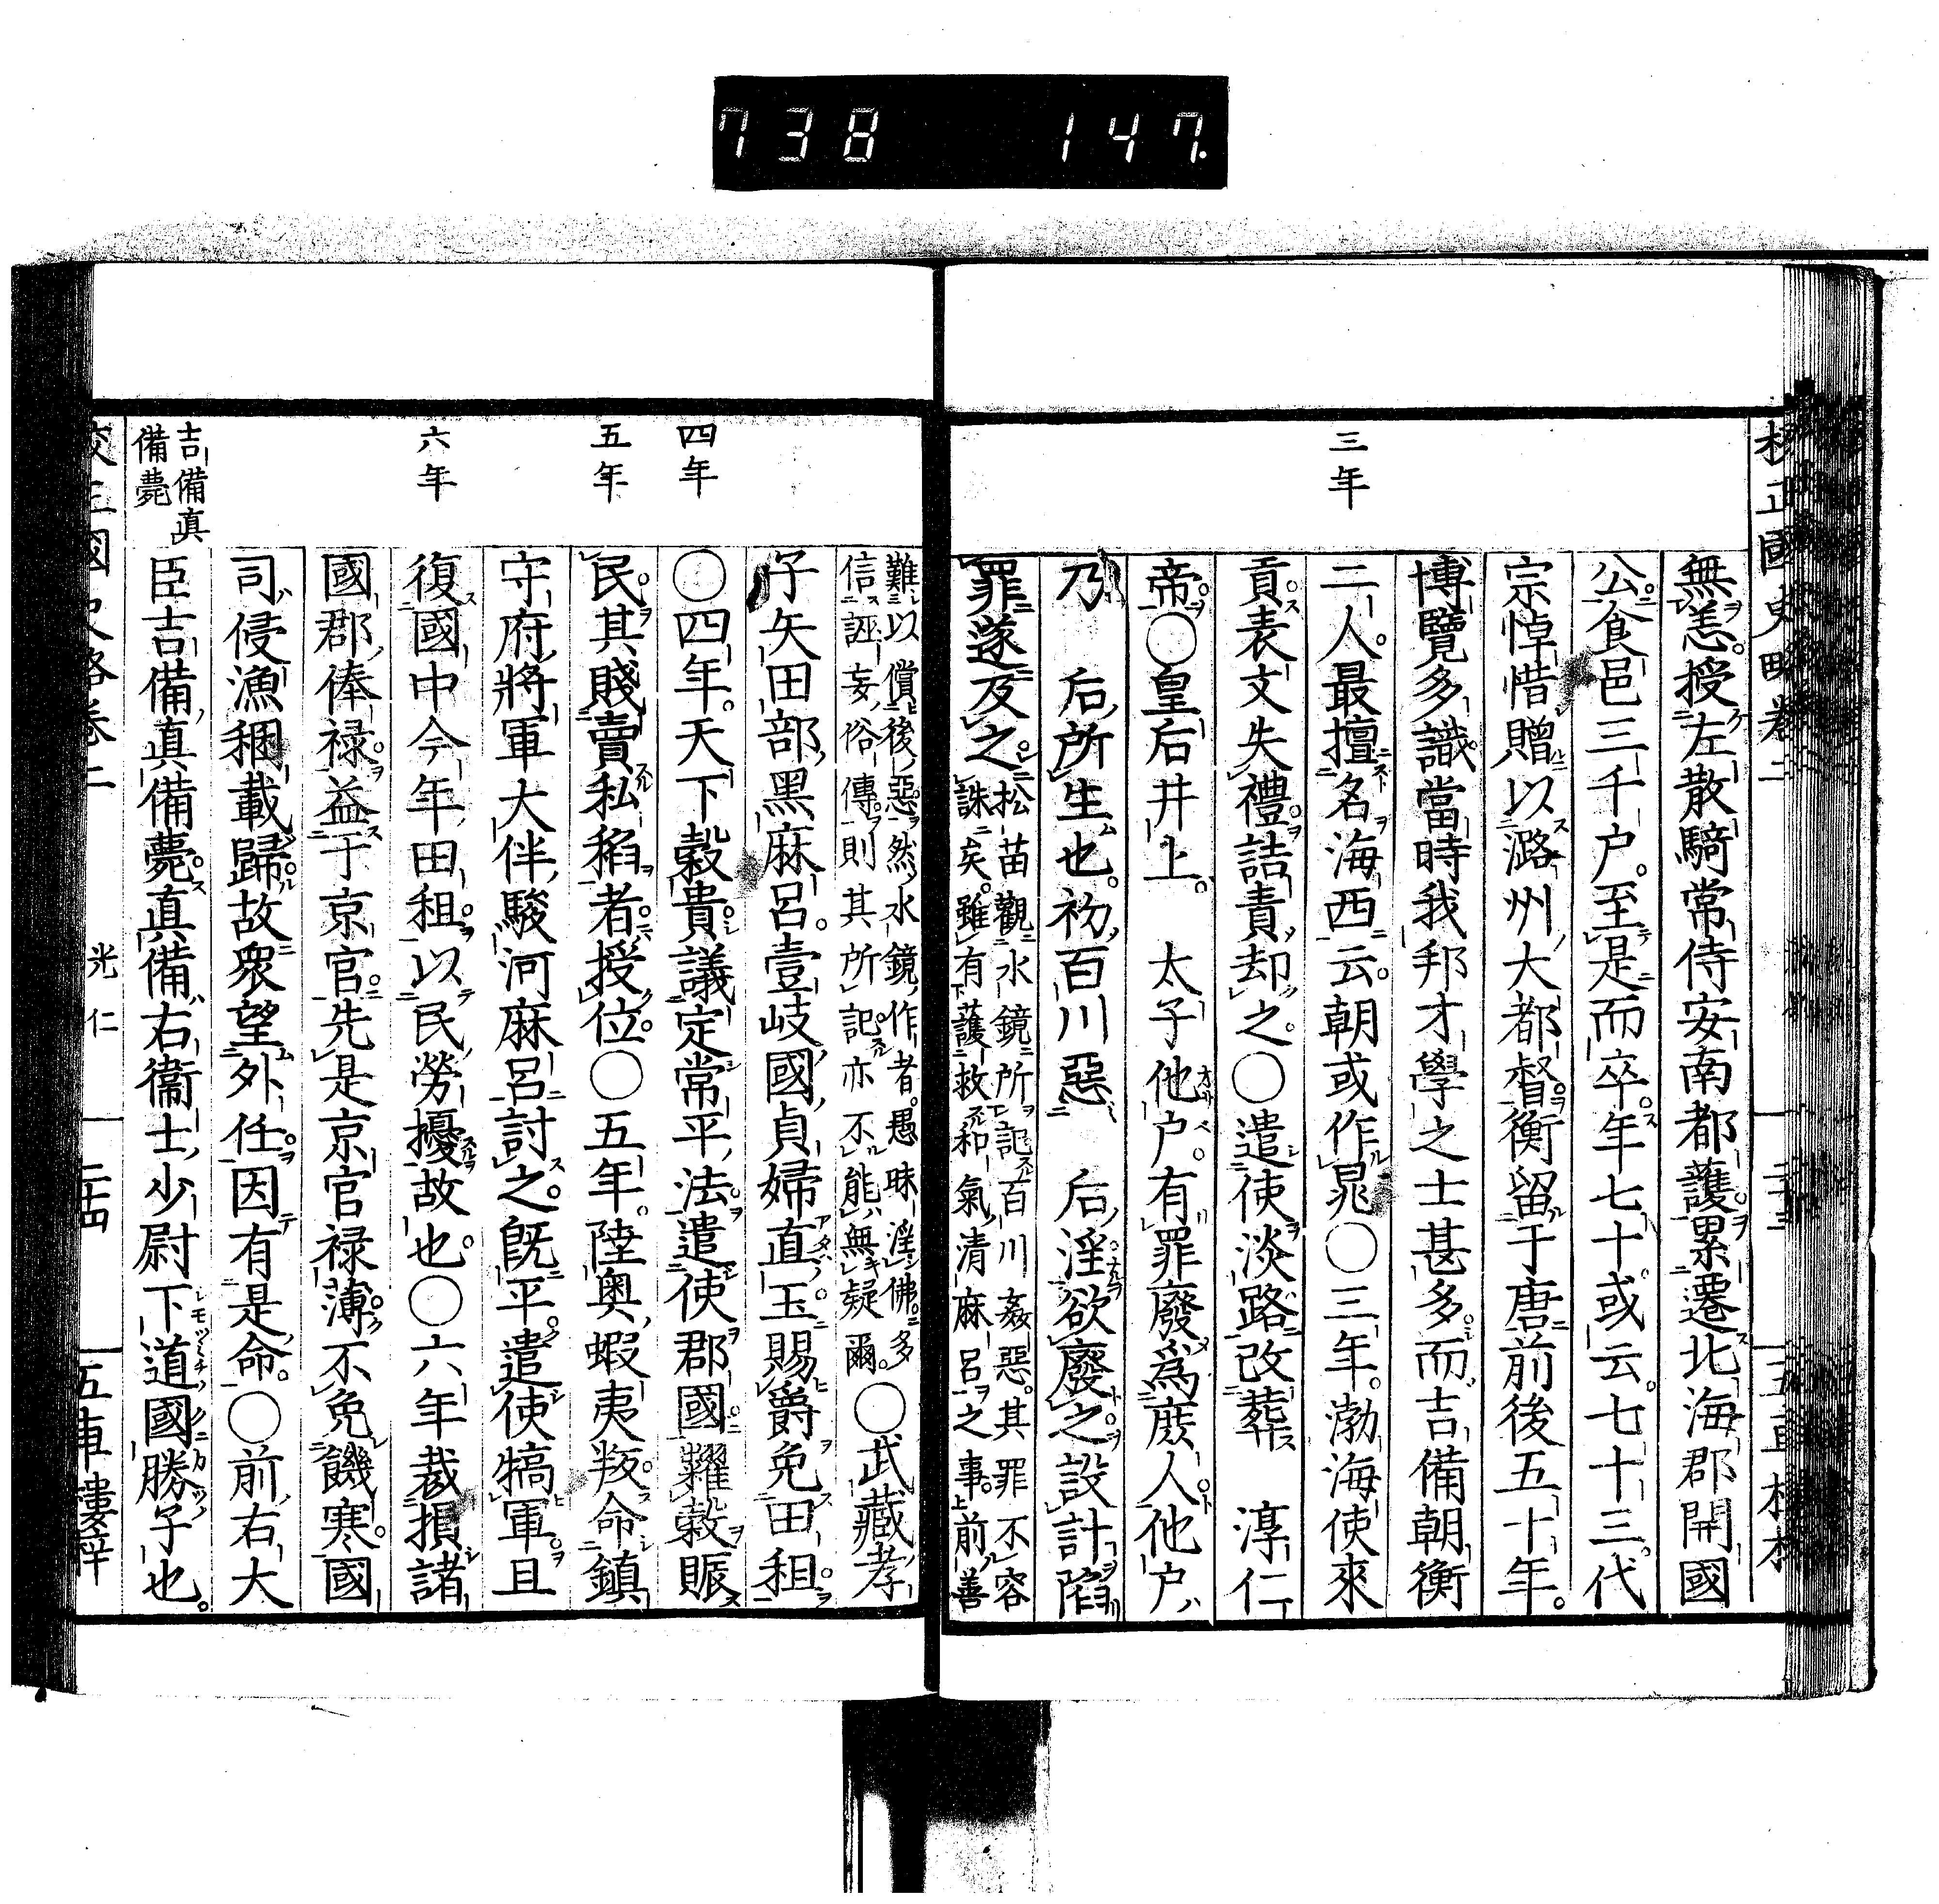 738 147.
校正國史略卷二
三年
無恙授左散騎常侍安南都護累遷北海郡開國
公食邑三千戶至是而卒年七十或云七十三代
宗悼惜贈以潞州大都督衡留于唐前後五十年
博覽多識當時我邦才學之士甚多而吉備朝衡
二人最擅名海西云朝或作鼂〇三年渤海使來
貢表文失禮詰責却之〇遣使淡路改葬 淳仁
帝〇皇后井上 太子他戶有罪廢爲庶人他戶
乃 后所生也初百川惡 后淫欲廢之設計陷
罪遂及之
松苗觀水鏡所記百川姦惡其罪不容
誅矣雖有護救和氣清麻呂之事前善
難以償後惡然水鏡作者愚昧淫佛多
信誣妄俗傳則其所記亦不能無疑爾
〇武藏孝
四年
五年
六年
吉備真
備薨
子矢田部黑麻呂壹岐國貞婦直玉賜爵免田租
〇四年天下穀貴議定常平法遣使郡國糶穀賑
民其賤賣私稻者授位〇五年陸奥蝦夷叛命鎮
守府將軍大伴駿河麻呂討之既平遣使犒軍且
復國中今年田租以民勞擾故也〇六年裁損諸
國郡俸禄益于京官先是京官禄薄不免饑寒國
司侵漁稛載歸故衆望外任因有是命〇前右大
臣吉備真備薨真備右衞士少尉下道國勝子也
光仁
二十四
五車樓梓